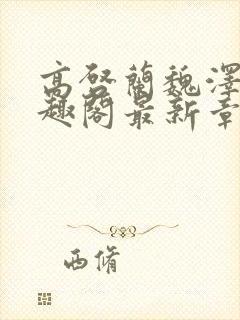 高启蘭魏澤
趣阁最新章
西脩